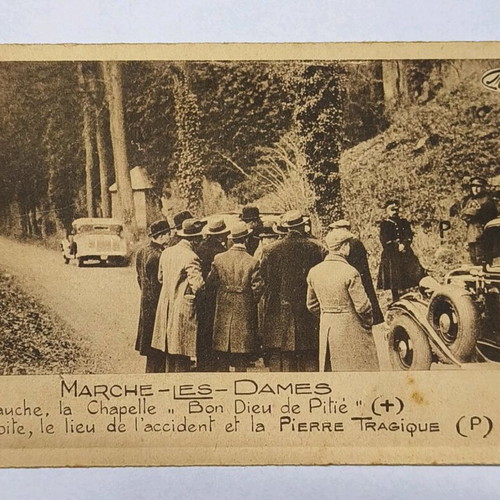 P
MARCHE-LES-DAMES
auche, la Chapelle „ Bon Dieu de Pitié " (+)
oite, le lieu de l'accident et la PIERRE TRAGIQUE (P)